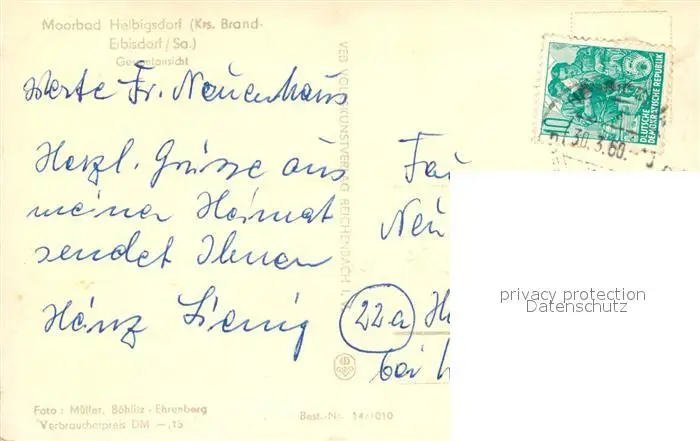 Moorbad Helbigsdorf (Krs. Brand-
Erbisdorf/Sa.)
Gesamtansicht
Werte Fr. Neuenhaus
Herzl. Grüsse aus
meiner Heimat
sendet Ihnen
Heinz
VEB VOLKSKUNSTVERLAG REICHENBACH I. V.
10
DEUTSCHE
DEMOKRATISCHE REPUBLIK
30.3.60.
Frau
Neu
22a
bei
privacy protection
Datenschutz
Foto: Müller, Böhlitz-Ehrenberg
Verbraucherpreis DM —,15
Best.-Nr. 14/1010